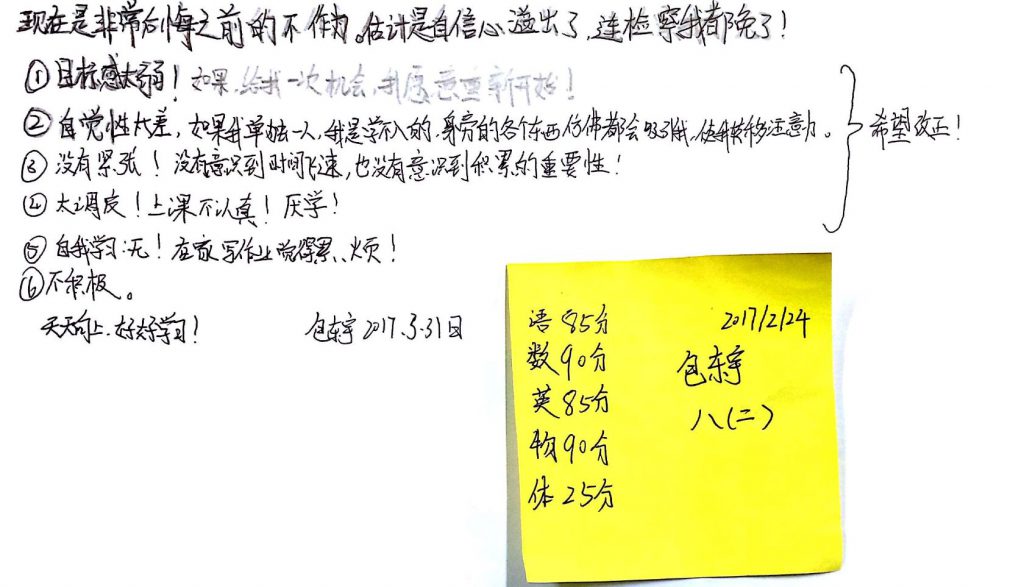 现在是非常后悔之前的不作为。估计是自信心溢出了,连检察我都免了!
①目标感太弱!如果,给我一次机会,我愿意重新开始!
②自觉性太差,如果我单独一人,我是学不入的,身旁的各个东西仿佛都会吸引我,使我转移注意力。
③没有紧张!没有意识到时间飞速,也没有意识到积累的重要性!
④太调皮!上课不认真!厌学!
⑤自我学习:无!在家写作业觉得累、烦!
⑥不积极。
希望改正!
天天向上,好好学习!
包东宇2017.3.31日
语85分
数90分
英85分
物90分
体25分
2017/2/24
包东宇
八(二)